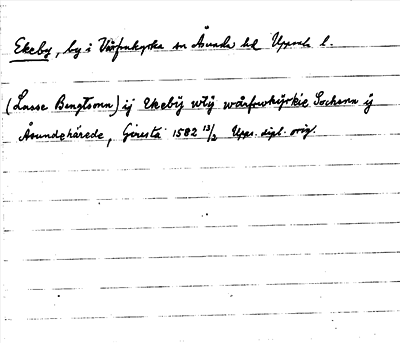 Ekeby, by i Vårfrukyrka sn Åsunda hd Uppsala l.
(Lasse Bengtsonn) ij Ekebij wtij wårfrwkijrkie Sochenn ij
Åsundehärede, Giresta 1582 13/2 Upps. dipl. orig.